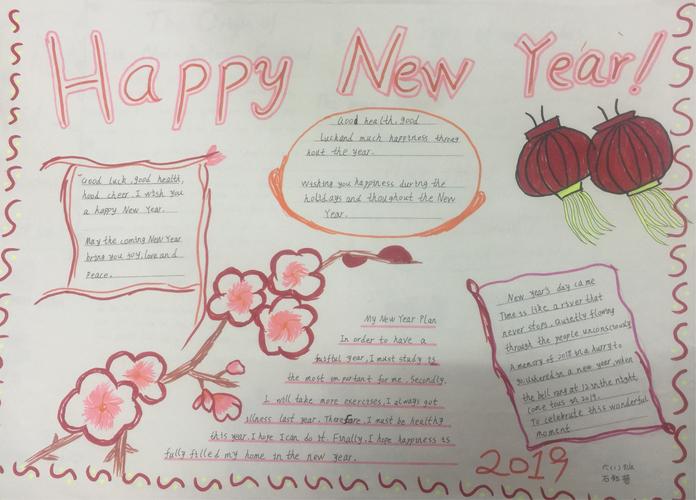 Happy New Year!
Good health, good
luckand much happiness throug
hout the year.
Wishing you happiness during the
holidays and thoughout the New
Year.
"Good luck, good health,
hood cheer. I wish you
a happy New Year.
May the coming New Year
bring you joy, love and
peace.
My New Year Plan
In order to have a
fruitful year, I must study is
the most important for me. Secondly,
I will take more exercises, I always got
illness last year. Therefore, I must be healthy
this year. I hope I can do it. Finally, I hope happiness is
fully filled my home in the new year.
New Year's day came
Time is like a river that
never stops. Quietly flowing
through the people unconsciously
A memory of 2018 in a hurry to
ushered in a new year, when
the bell rang at 12 in the night,
come tous in 2019.
To celebrate this wonderful
moment
2019